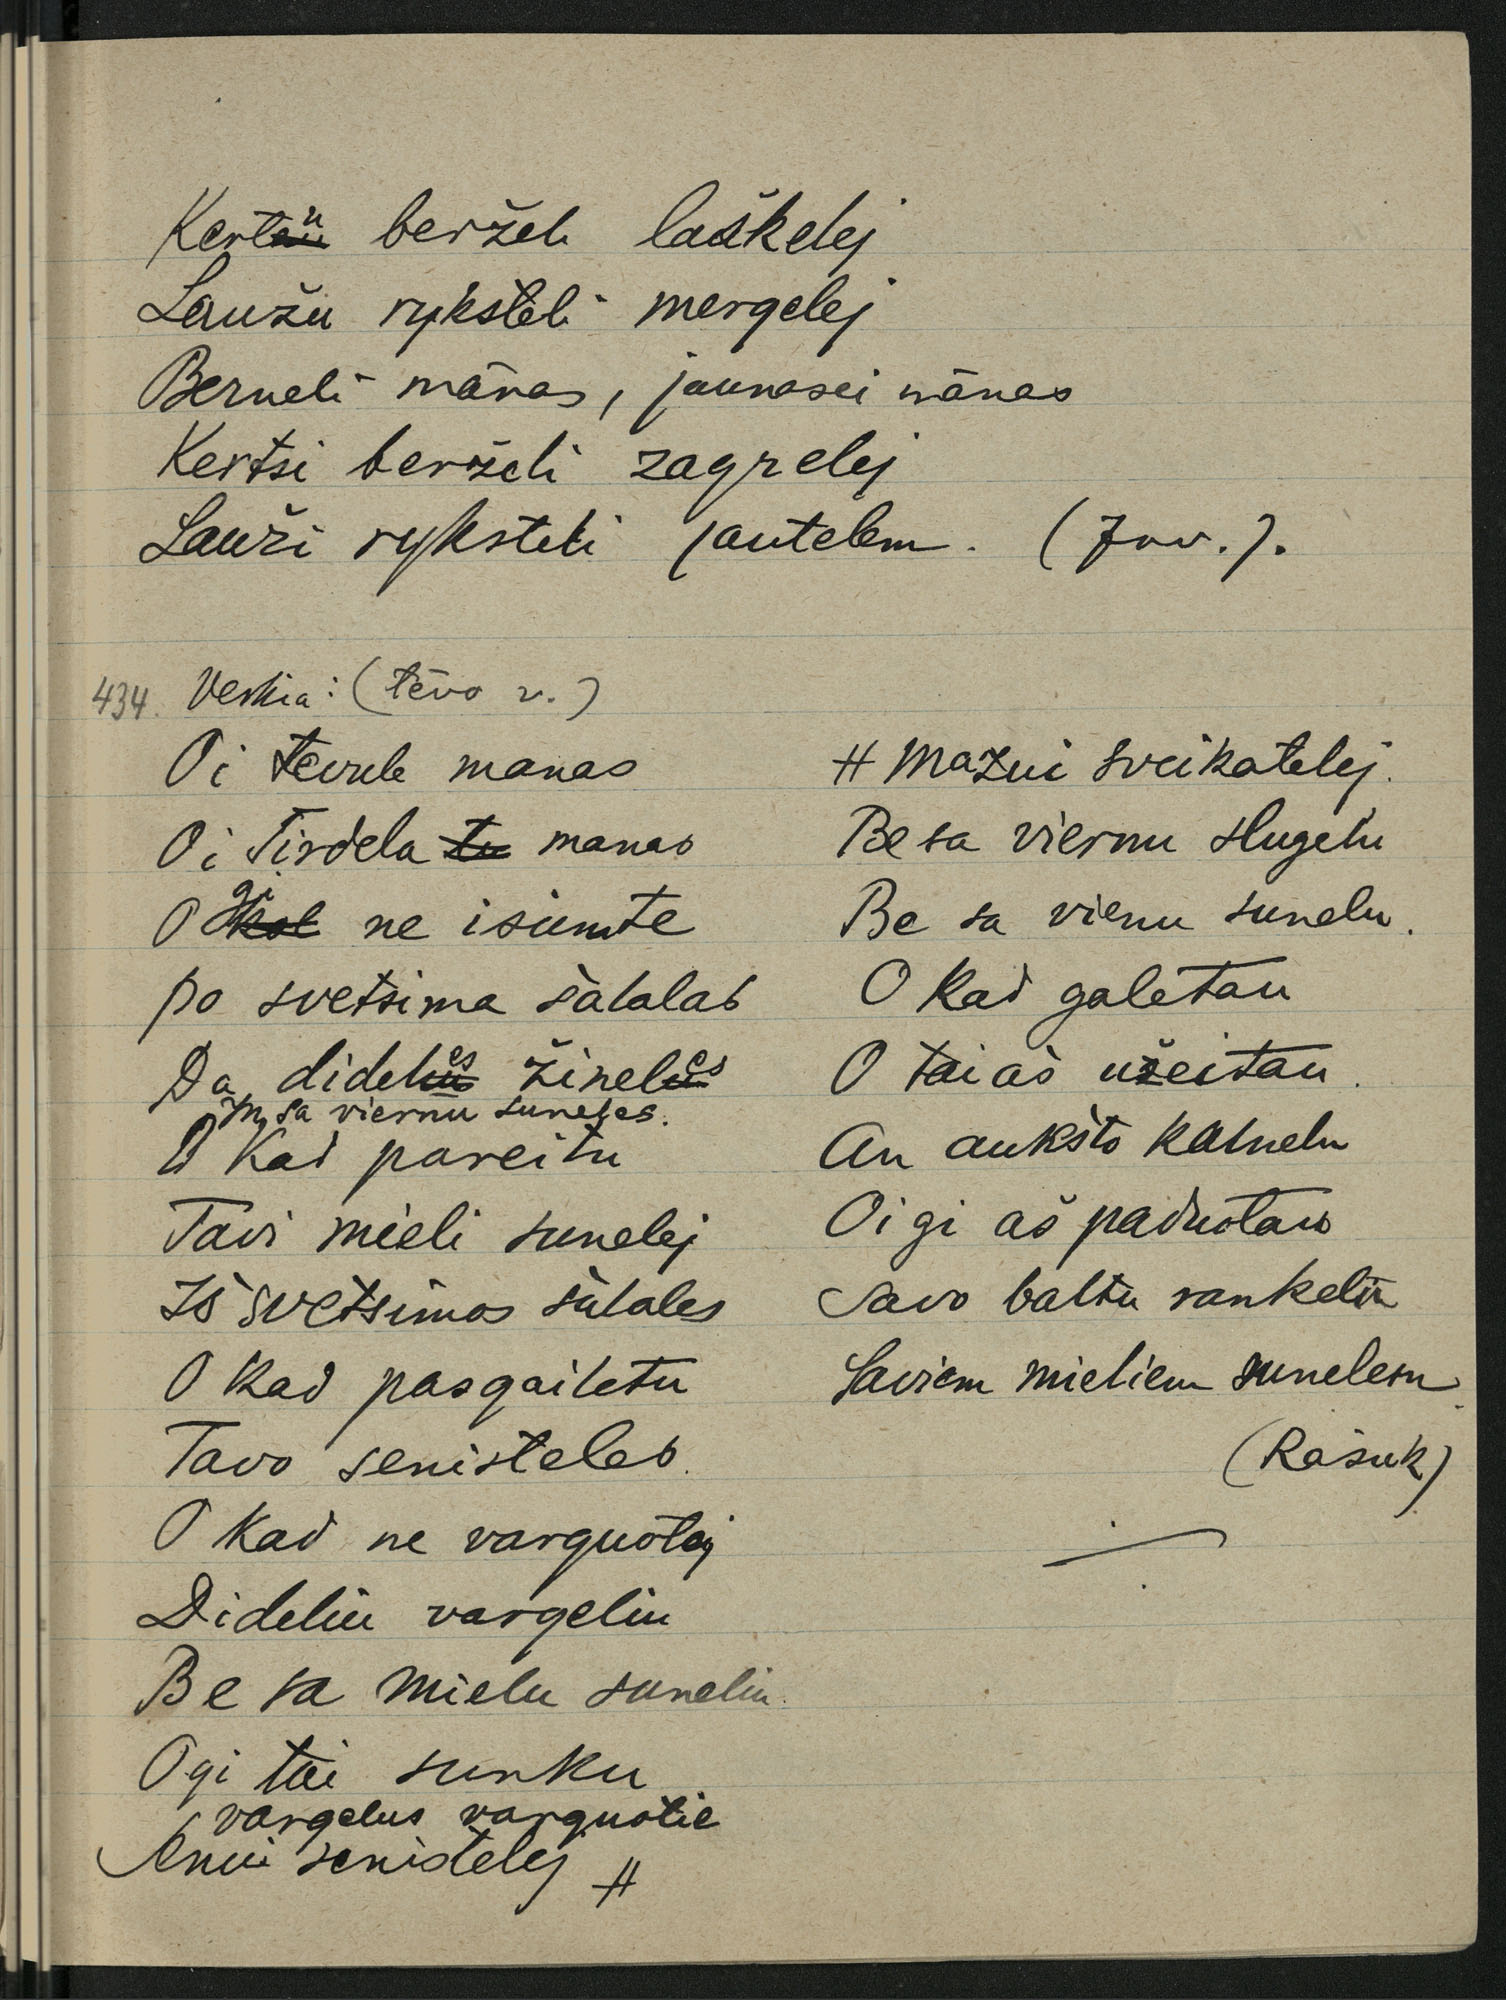 Kertu berželi laškelej
Laužu ryksteli mergelej
Berneli mānas, jaunasei mānas
Kertsi berželi zagrelej
Lauži ryksteli jautelem. (Juv.).
434. Verkia: (tēvo v.)
Oi tevule manas
Oi Tirdela manas
O gi ne isiumte
po svetsima šalalas
Da dideles žineles
m, sa viernu suneles.
O Kad pareitu
Tavi mieli sunelej
Iš svetsimos šalales
O kad pasgailetu
Tavo senisteles.
O kad ne varguotej
Dideliu vargeliu
Be sa mielu suneliu.
Ogi tai sunku
vargelus varguotie
Senui senistelej #
# Mazui sveikatelej.
Be sa viernu slugelu
Be sa vienu sunelu.
O kad galetau
O tai aš užeitau.
An aukšto kalnelu
Oi gi aš paduotau
Savo baltu rankeliu
Saviem mieliem sunelem.
(Rašuk)